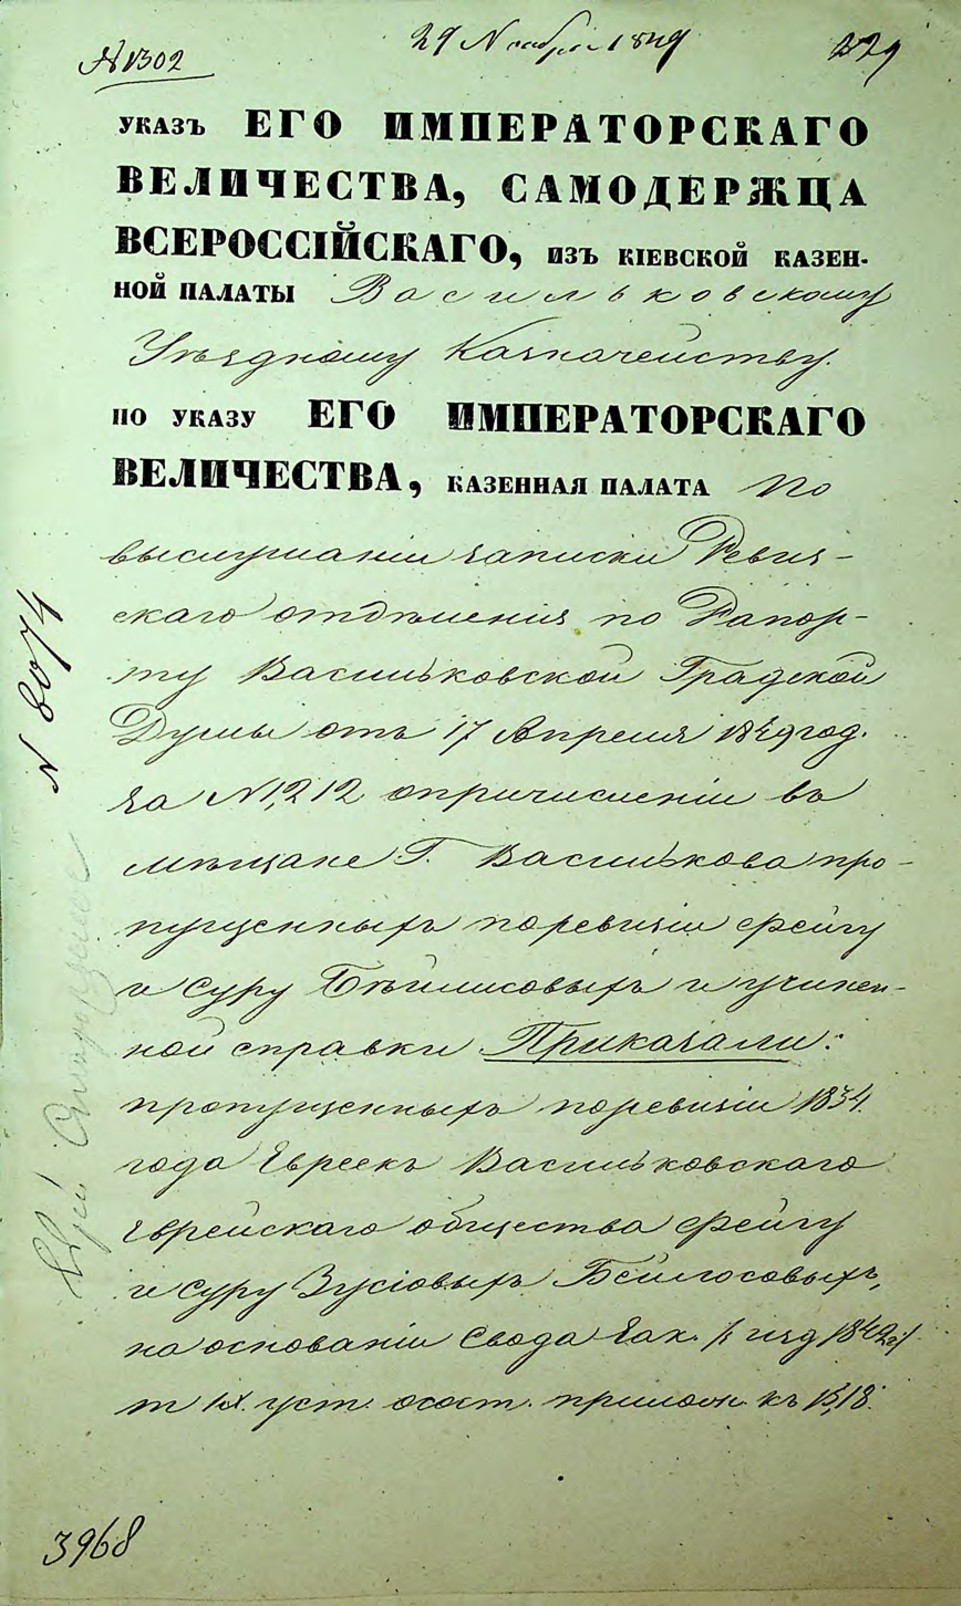 29 Ноября 1849
№ 1302
229
УКАЗЪ ЕГО ИМПЕРАТОРСКАГО
ВЕЛИЧЕСТВА, САМОДЕРЖЦА
ВСЕРОССІЙСКАГО, ИЗЪ КІЕВСКОЙ КАЗЕН-
НОЙ ПАЛАТЫ Васильковскому
Уѣздному Казначейству.
ПО УКАЗУ ЕГО ИМПЕРАТОРСКАГО
ВЕЛИЧЕСТВА, КАЗЕННАЯ ПАЛАТА По
выслушаніи записки Ревиз-
скаго отдѣленія по Рапор-
ту Васильковской Градской
Думы отъ 17 Апреля 1849 год.
за № 1,212 опричисленіи въ
мѣщане Г. Василькова про-
пущенныхъ поревизіи Фейгу
и Суру Бейлисовыхъ и учинен-
ной справки Приказали:
пропущенныхъ поревизіи 1834.
года Евреекъ Васильковскаго
Еврейскаго общества Фейгу
и Суру Зусіовыхъ Бейлосовыхъ,
на основаніи Свода Зак. /: изд 1842 г:/
т IX. уст. осост. прилож. къ 15,18.
N 8074
3968